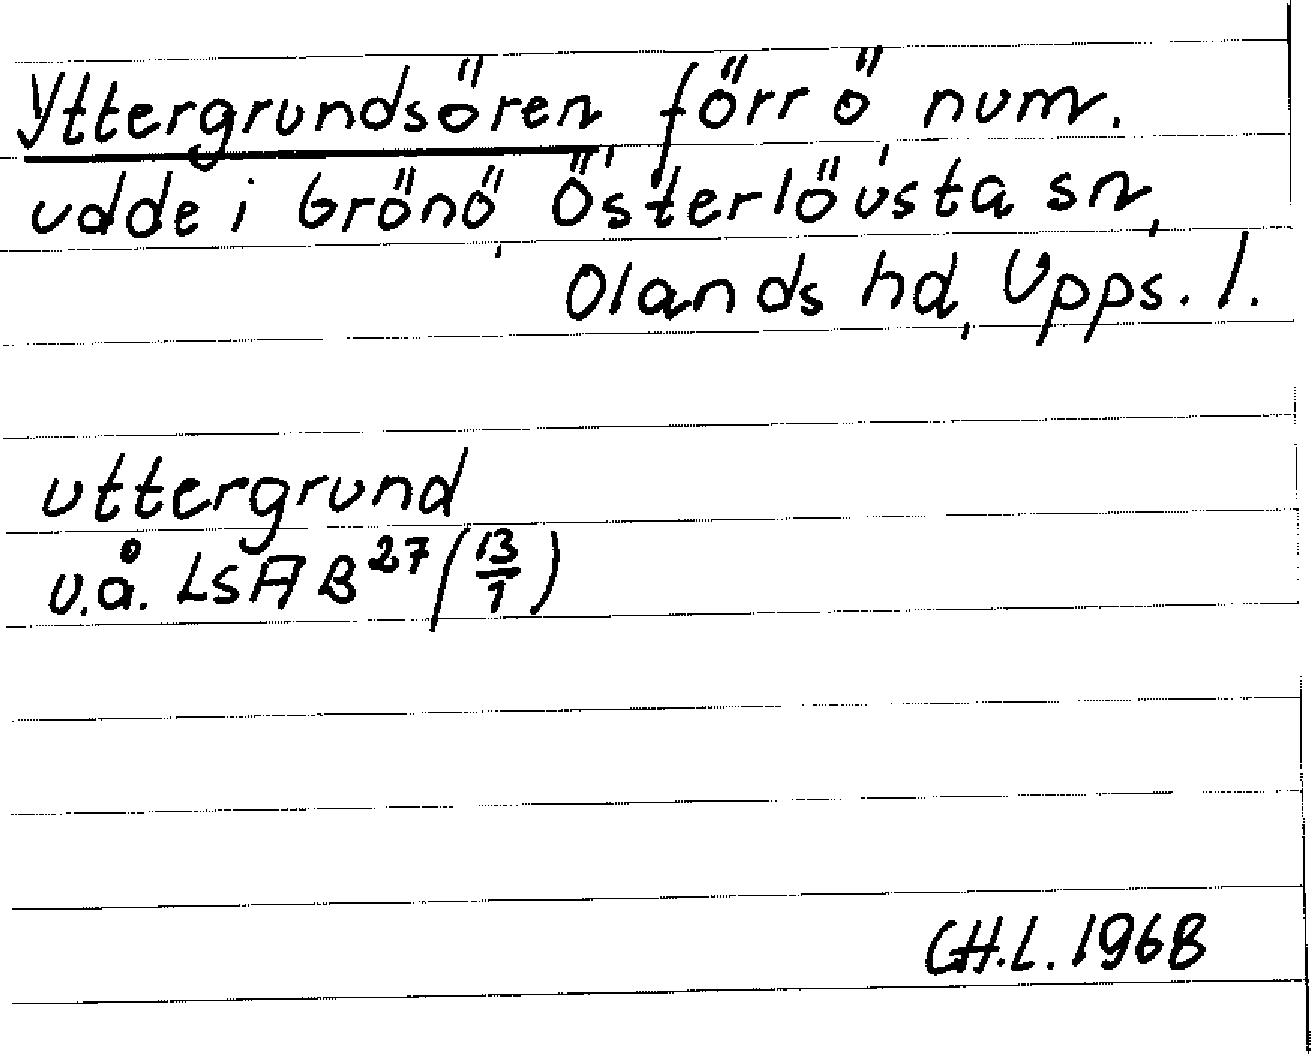 Yttergrundsören, förr ö, num.
udde i Grönö, Österlövsta sn,
Olands hd, Upps. l.
uttergrund
u.å. LSA B²⁷ (13/1)
G.H.L. 1968